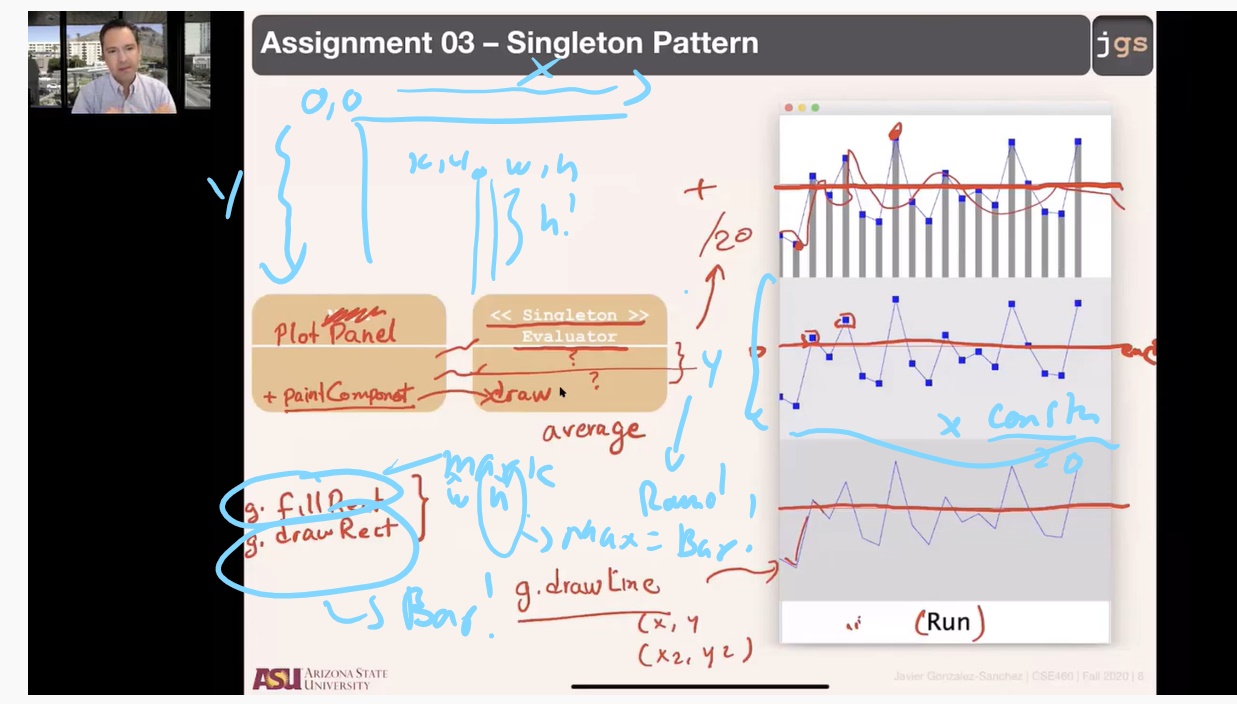 Assignment 03 – Singleton Pattern
jgs
X
0,0
Y
x,y
w,h
h!
+
/20
Plot Panel
+ paintComponent
<< Singleton >>
Evaluator
?
?
draw
average
Y
x const
20
g. fillRect
g. drawRect
mark
w h
Max = Bar!
Bar!
g.drawLine
(x, y
(x2, y2)
(Run)
ASU ARIZONA STATE
UNIVERSITY
Javier Gonzalez-Sanchez | CSE460 | Fall 2020 | 8